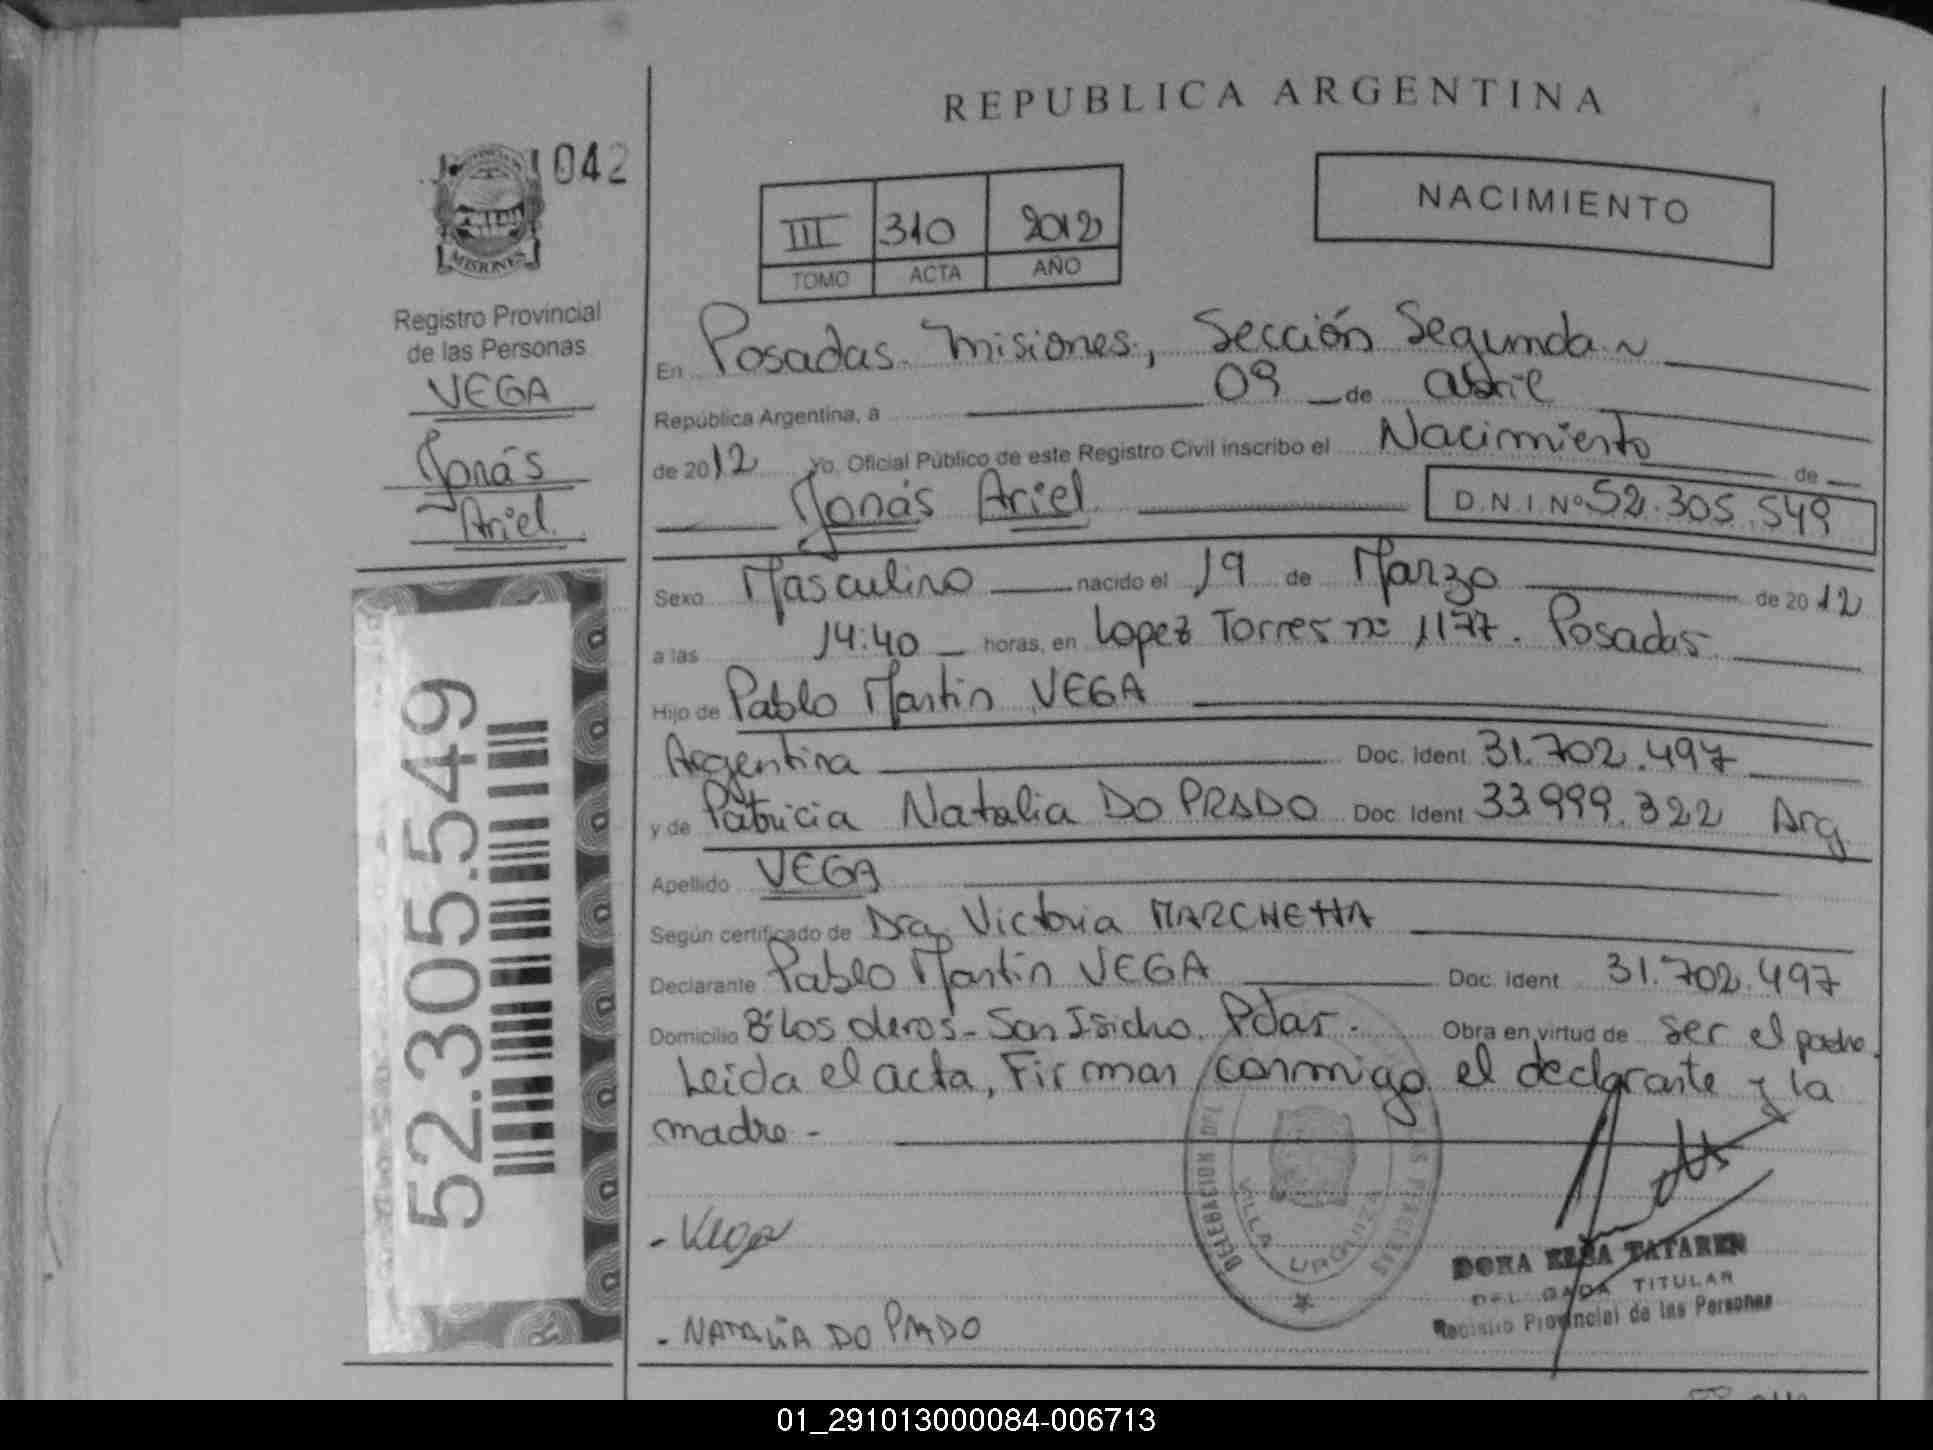 REPUBLICA ARGENTINA
042
NACIMIENTO
III 310 2012
TOMO ACTA AÑO
MISIONES
Registro Provincial
de las Personas
VEGA
Jonás
Ariel
52.305.549
En Posadas. Misiones, Sección Segunda
República Argentina, a 09 de abril
de 2012 Yo, Oficial Público de este Registro Civil inscribo el Nacimiento de
Jonás Ariel D.N.I. Nº 52.305.549
Sexo Masculino nacido el 19 de Marzo de 2012
a las 14:40 horas, en Lopez Torres nº 1177. Posadas
Hijo de Pablo Martin VEGA
Argentina Doc. Ident 31.702.497
y de Patricia Natalia DO PRADO Doc. Ident 33.999.322 Arg
Apellido VEGA
Según certificado de Dra. Victoria MARCHETTA
Declarante Pablo Martin VEGA Doc. Ident 31.702.497
Domicilio Bº Los - San Isidro. Pdas. Obra en virtud de ser el padre.
Leida el acta, Firman conmigo el declarante y la
madre -
- Vega
- NATALIA DO PRADO
DELEGACION DEL
VILLA URQUIZA
DORA ELSA TATAREN
DELEGADA TITULAR
Registro Provincial de las Personas
01_291013000084-006713